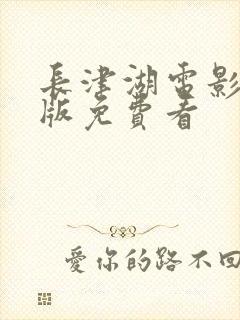 長津湖電影
版免費看
愛你的路不回